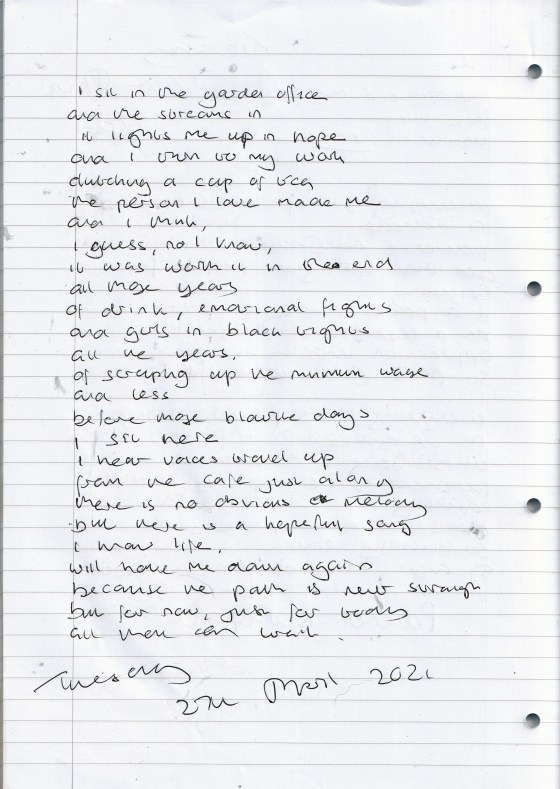 I sit in the garden office
and the streams in
it lights me up in hope
and I turn to my work
clutching a cup of tea
the person I love made me
and I think,
I guess, no I know,
it was worth it in the end
all those years
of drink, emotional fights
and girls in black tights
all the years,
of scraping up the minimum wage
and less
before those blowtie days
I sit here
I hear voices travel up
from the cafe just along
there is no obvious melody
but there is a hopeful song
I know life,
will have me down again
because the path is never straight
but for now, just for today
all that can wait.
Tuesday
27th April 2021